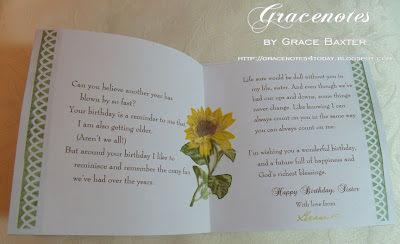 Gracenotes
BY GRACE BAXTER
HTTP://GRACENOTES4TODAY.BLOGSPOT.COM
Can you believe another year has
flown by so fast?
Your birthday is a reminder to me that
I am also getting older.
(Aren't we all!)
But around your birthday I like to
reminisce and remember the many fun
we've had over the years.
Life sure would be dull without you in
my life, sister. And even though we've
had our ups and downs, some things
never change. Like knowing I can
always count on you in the same way
you can always count on me.
I'm wishing you a wonderful birthday,
and a future full of happiness and
God's richest blessings.
Happy Birthday, Sister
With love from